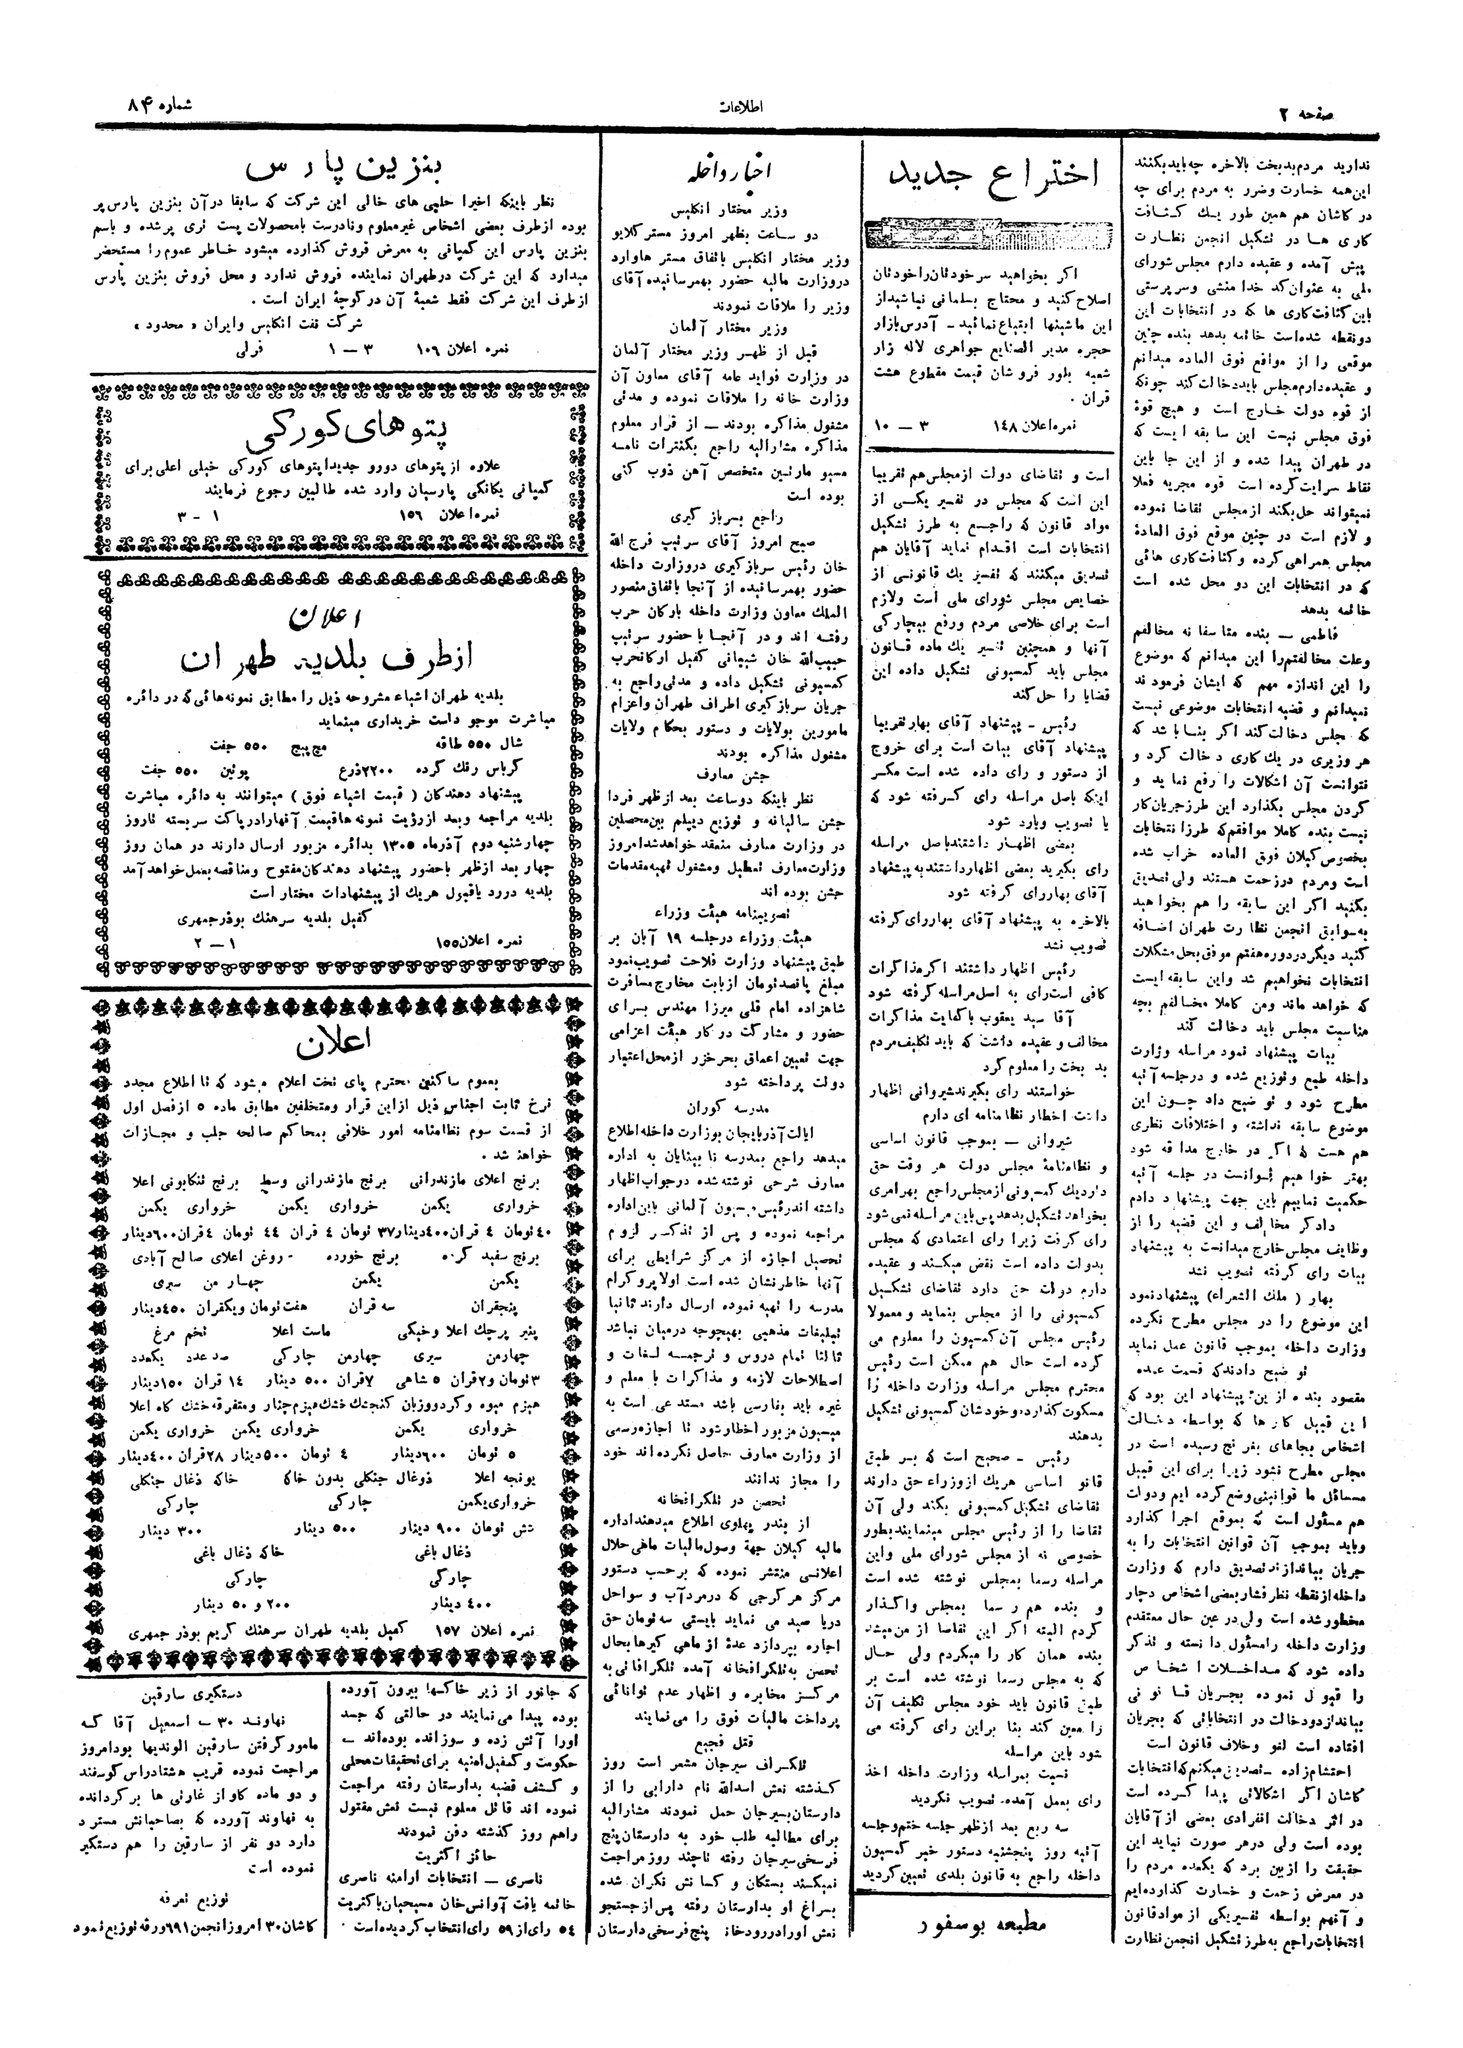 صفحه ۲
اطلاعات
شماره ۸۴
ندارید مردم بدبخت بالاخره چه باید بکنند
این همه خسارت وضرر به مردم برای چه
در کاشان هم همین طور یك کثافت
کاری ها در تشکیل انجمن نظارت
پیش آمده و عقیده دارم مجلس شورای
ملی به عنوان کد خدا منشی وسرپرستی
باین کثافت کاری ها که در انتخابات این
دونقطه شده است خاتمه بدهد بنده چنین
موقعی را از مواقع فوق العاده میدانم
و عقیده دارم مجلس باید دخالت کند چونکه
از قوه دولت خارج است و هیچ قوهٔ
فوق مجلس نیست این سابقه ایست که
در طهران پیدا شده و از این جا باین
نقاط سرایت کرده است قوه مجریه فعلا
نمیتواند حل بکند از مجلس تقاضا نموده
و لازم است در چنین موقع فوق العادهٔ
مجلس همراهی کرده و کثافت کاری هائی
که در انتخابات این دو محل شده است
خاتمه بدهد
فاطمی – بنده متاسفانه مخالفم
وعلت مخالفتم را این میدانم که موضوع
را این اندازه مهم که ایشان فرمودند
نمیدانم و قضیه انتخابات موضوعی نیست
که مجلس دخالت کند اکر بنا باشد که
هر وزیری در یك کاری دخالت کرد و
نتوانست آن اشکالات را رفع نماید و
کردن مجلس بگذارد این طرز جریان کار
نیست بنده کاملا موافقم که طرز انتخابات
بخصوص کیلان فوق العاده خراب شده
است ومردم درزحمت هستند ولی تصدیق
بکنید اکر این سابقه را هم بخواهید
به سوابق انجمن نظارت طهران اضافه
کنید دیگر در دوره هفتم موفق بحل مشکلات
انتخابات نخواهیم شد واین سابقه ایست
که خواهد ماند ومن کاملا مخالفم بچه
مناسبت مجلس باید دخالت کند
بیات پیشنهاد نمود مراسله وزارت
داخله طبع و توزیع شده و درجلسه آتیه
مطرح شود و توضیح داد چون این
موضوع سابقه نداشته و اختلافات نظری
هم هست که اکر در خارج مداقه شود
بهتر خواهیم توانست در جلسه آتیه
حکمیت نماییم باین جهت پیشنهاد دادم
دادگر مخالف و این قضیه را از
وظایف مجلس خارج میدانست به پیشنهاد
بیات رای کرفته تصویب نشد
بهار ( ملك الشعراء) پیشنهاد نمود
این موضوع را در مجلس مطرح نکرده
وزارت داخله بموجب قانون عمل نماید
توضیح دادند که قسمت عمده
مقصود بنده از این پیشنهاد این بود که
این قبیل کارها که بواسطه دخالت
اشخاص بجاهای بغرنج رسیده است در
مجلس مطرح نشود زیرا برای این قبیل
مسائل ما قوانینی وضع کرده ایم و دولت
هم مسئول است که بموقع اجرا کذارد
وباید بموجب آن قوانین انتخابات را به
جریان بیاندازند تصدیق دارم که وزارت
داخله از نقطه نظر فشار بعضی اشخاص دچار
محظور شده است ولی در عین حال معتقدم
وزارت داخله را مسئول دانسته و تذکر
داده شود که مداخلات اشخاص
را قبول ننموده بجریان قانونی
بیاندازد و دخالت در انتخاباتی که بجریان
افتاده است لغو وخلاف قانون است
احتشام زاده – تصدیق میکنم که انتخابات
کاشان اکر اشکالاتی پیدا کرده است
در اثر دخالت انفرادی بعضی از آقایان
بوده است ولی درهر صورت نباید این
حقیقت را از بین برد که یکعده مردم را
در معرض زحمت و خسارت گذارده ایم
و آنهم بواسطه تفسیر یکی از مواد قانون
انتخابات راجع به طرز تشکیل انجمن نظارت
اختراع جدید
اکر بخواهید سر خودتان را خودتان
اصلاح کنید و محتاج بسلمانی نباشید از
این ماشینها ابتیاع نمائید – آدرس بازار
حجره مدیر الصنایع جواهری لاله زار
شعبه بلور فروشان قیمت مقطوع هشت
قران .
نمره اعلان ۱۴۸ ۳ – ۱۰
است و تقاضای دولت از مجلس هم تقریبا
این است که مجلس در تفسیر یکی از
مواد قانون که راجع به طرز تشکیل
انتخابات است اقدام نماید آقایان هم
تصدیق میکنند که تفسیر یك قانونی از
خصایص مجلس شورای ملی است ولازم
است برای خلاصی مردم ورفع بیچارکی
آنها و همچنین تفسیر یك ماده قانون
مجلس باید کمسیونی تشکیل داده این
قضایا را حل کند
رئیس – پیشنهاد آقای بهار تقریبا
پیشنهاد آقای بیات است برای خروج
از دستور و رای داده شده است مکر
اینکه باصل مراسله رای کرفته شود که
یا تصویب ویارد شود
بعضی اظهار داشتند باصل مراسله
رای بگیرید بعضی اظهار داشتند به پیشنهاد
آقای بهار رای کرفته شود
بالاخره به پیشنهاد آقای بهار رای کرفته
تصویب نشد
رئیس اظهار داشتند اکر مذاکرات
کافی است رای به اصل مراسله کرفته شود
آقا سید یعقوب با کفایت مذاکرات
مخالف و عقیده داشت که باید تکلیف مردم
بد بخت را معلوم کرد
خواستند رای بگیرند شیروانی اظهار
داشت اخطار نظامنامه ای دارم
شیروانی – بموجب قانون اساسی
و نظامنامهٔ مجلس دولت هر وقت حق
دارد یك کمسیونی از مجلس راجع بهرامری
بخواهد تشکیل بدهد پس باین مراسله نمی شود
رای کرفت زیرا رای اعتمادی که مجلس
بدولت داده است نقض میکند و عقیده
دارم دولت حق دارد تقاضای تشکیل
کمسیونی را از مجلس بنماید و معمولا
رئیس مجلس آن کمسیون را معلوم می
کرده است حال هم ممکن است رئیس
محترم مجلس مراسله وزارت داخله را
مسکوت کذارده و خودشان کمسیونی تشکیل
بدهند
رئیس – صحیح است که بر طبق
قانون اساسی هریك از وزراء حق دارند
تقاضای تشکیل کمسیونی بکند ولی آن
تقاضا را از رئیس مجلس مینمایند بطور
خصوصی نه از مجلس شورای ملی واین
مراسله رسما بمجلس نوشته شده است
و بنده هم رسما بمجلس واگذار
کردم البته اکر این تقاضا از من میشد
بنده همان کار را میکردم ولی حال
که به مجلس رسما نوشته شده است بر
طبق قانون باید خود مجلس تکلیف آن
را معین کند بنا براین رای کرفته می
شود باین مراسله
نسبت بمراسله وزارت داخله اخذ
رای بعمل آمده تصویب نکردید
سه ربع بعد از ظهر جلسه ختم و جلسه
آتیه روز پنجشنبه دستور خبر کمسیون
داخله راجع به قانون بلدی تعیین کردید
مطبعه بوسفور
اخبار داخله
وزیر مختار انکلیس
دو ساعت بظهر امروز مستر کلایو
وزیر مختار انکلیس باتفاق مستر هاوارد
دروزارت مالیه حضور بهمرسانیده آقای
وزیر را ملاقات نمودند
وزیر مختار آلمان
قبل از ظهر وزیر مختار آلمان
در وزارت فواید عامه آقای معاون آن
وزارت خانه را ملاقات نموده و مدتی
مشغول مذاکره بودند – از قرار معلوم
مذاکره مشارالیه راجع بکنترات نامه
مسیو مارتین متخصص آهن ذوب کنی
بوده است
راجع بسرباز کیری
صبح امروز آقای سرتیپ فرج الله
خان رئیس سرباز کیری دروزارت داخله
حضور بهمرسانیده از آنجا باتفاق منصور
الملك معاون وزارت داخله بارکان حرب
رفته اند و در آنجا با حضور سرتیپ
حبیب الله خان شیبانی کفیل ارکانحرب
کمسیونی تشکیل داده و مدتی راجع به
جریان سرباز کیری اطراف طهران واعزام
مامورین بولایات و دستور بحکام ولایات
مشغول مذاکره بودند
جشن معارف
نظر باینکه دوساعت بعد از ظهر فردا
جشن سالیانه و توزیع دیپلم بین محصلین
در وزارت معارف منعقد خواهد شد امروز
وزارت معارف تعطیل و مشغول تهیه مقدمات
جشن بوده اند
تصویبنامه هیئت وزراء
هیئت وزراء درجلسه ۱۹ آبان بر
طبق پیشنهاد وزارت فلاحت تصویب نمود
مبلغ پانصد تومان از بابت مخارج مسافرت
شاهزاده امام قلی میرزا مهندس برای
حضور و مشارکت در کار هیئت اعزامی
جهت تعیین اعماق بحر خزر از محل اعتبار
دولت پرداخته شود
مدرسه کوران
ایالت آذربایجان بوزارت داخله اطلاع
میدهد راجع بمدرسه نابینایان به اداره
معارف شرحی نوشته شده در جواب اظهار
داشته اند رئیس میسیون آلمانی باین اداره
مراجعه نموده و پس از تذکر لزوم
تحصیل اجازه از مرکز شرایطی برای
آنها خاطرنشان شده است اولا پروکرام
مدرسه را تهیه نموده ارسال دارند ثانیا
تبلیغات مذهبی بهیچوجه درمیان نباشد
ثالثا تمام دروس و ترجمه لغات و
اصطلاحات لازمه و مذاکرات با معلم و
غیره باید بفارسی باشد مستدعی است به
میسیون مزبور اخطار شود تا اجازه رسمی
از وزارت معارف حاصل نکرده اند خود
را مجاز ندانند
تحصن در تلکرافخانه
از بندر پهلوی اطلاع میدهند اداره
مالیه کیلان جهة وصول مالیات ماهی حلال
اعلانی منتشر نموده که برحسب دستور
مرکز هر کرجی که درمرداب و سواحل
دریا صید می نماید بایستی سه تومان حق
اجاره بپردازد عدهٔ از ماهی کیرها بحال
تحصن به تلکرافخانه آمده تلکرافاتی به
مرکز مخابره و اظهار عدم توانائی
پرداخت مالیات فوق را می نمایند
قتل فجیع
تلکراف سیرجان مشعر است روز
کذشته نعش اسدالله نام دارابی را از
دارستان بسیرجان حمل نمودند مشارالیه
برای مطالبه طلب خود به دارستان پنج
فرسخی سیرجان رفته تا چند روز مراجعت
نمیکند بستکان و کسانش نکران شده
بسراغ او بدارستان رفته پس از جستجو
نعش او را در رودخانه پنج فرسخی دارستان
بنزین پارس
نظر باینکه اخیرا حلبی های خالی این شرکت که سابقا درآن بنزین پارس پر
بوده ازطرف بعضی اشخاص غیرمعلوم ونادرست بامحصولات پست تری پرشده و باسم
بنزین پارس این کمپانی به معرض فروش کذارده میشود خاطر عموم را مستحضر
میدارد که این شرکت درطهران نماینده فروش ندارد و محل فروش بنزین پارس
ازطرف این شرکت فقط شعبهٔ آن درکوچهٔ ایران است .
شرکت نفت انکلیس وایران « محدود »
نمره اعلان ۱۰۶ ۳ – ۱ فرلی
پتوهای کورکی
علاوه از پتوهای دورو جدیدا پتوهای کورکی خیلی اعلی برای
کمپانی یکانکی پارسیان وارد شده طالبین رجوع فرمایند
نمره اعلان ۱۵۶ ۱ – ۳
اعلان
ازطرف بلدیه طهران
بلدیه طهران اشیاء مشروحه ذیل را مطابق نمونه هائی که در دائره
مباشرت موجود است خریداری مینماید
شال ۵۵۰ طاقه مچ پیچ ۵۵۰ جفت
کرباس رنك کرده ۲۲۰۰ذرع پوتین ۵۵۰ جفت
پیشنهاد دهندکان ( قیمت اشیاء فوق ) میتوانند به دائره مباشرت
بلدیه مراجعه وبعد از رؤیت نمونه ها قیمت آنها را در پاکت سربسته تا روز
چهارشنبه دوم آذرماه ۱۳۰۵ بدائره مزبور ارسال دارند در همان روز
چهار بعد از ظهر باحضور پیشنهاد دهندکان مفتوح ومناقصه بعمل خواهد آمد
بلدیه دررد یاقبول هریك از پیشنهادات مختار است
کفیل بلدیه سرهنك بوذرجمهری
نمره اعلان۱۵۵ ۱ – ۲
اعلان
بعموم ساکنین محترم پای تخت اعلام میشود که تا اطلاع مجدد
نرخ ثابت اجناس ذیل ازاین قرار ومتخلفین مطابق ماده ۵ ازفصل اول
از قسمت سوم نظامنامه امور خلافی بمحاکم صالحه جلب و مجازات
خواهند شد .
برنج اعلای مازندرانی برنج مازندرانی وسط برنج تنکابونی اعلا
خرواری یکمن خرواری یکمن خرواری یکمن
۴۰ تومان ۴ قران ۴۰۰دینار ۳۷ تومان ۴ قران ۴۴ تومان ۴قران ۶۰۰دینار
برنج سفید کرده برنج خورده روغن اعلای صالح آبادی
یکمن یکمن چهار من سیری
پنجقران سه قران هفت تومان ویکقران ۴۵۰دینار
پنیر پرچك اعلا وخیکی ماست اعلا تخم مرغ
چهارمن سیری چهارمن چارکی صدعدد یکعدد
۳تومان و۲قران ۵شاهی ۷قران ۵۰۰ دینار ۱۴ قران ۱۵۰دینار
هیزم میوه وکردووزبان کنجشك خشك هیزم چنار ومتفرقه خشك کاه اعلا
خرواری یکمن خرواری یکمن خرواری یکمن
۵ تومان ۶۰۰دینار ۴ تومان ۵۰۰دینار ۲۸قران ۴۰۰دینار
یونجه اعلا ذوغال جنکلی بدون خاکه خاکه ذغال جنکلی
خرواری یکمن چارکی چارکی
شش تومان ۹۰۰ دینار ۵۰۰ دینار ۳۰۰ دینار
ذغال باغی خاکه ذغال باغی
چارکی چارکی
۴۰۰ دینار ۲۰۰ و ۵۰ دینار
نمره اعلان ۱۵۷ کفیل بلدیه طهران سرهنك کریم بوذرجمهری
که جانور از زیر خاکها بیرون آورده
بوده پیدا می نمایند در حالتی که جسد
اورا آتش زده و سوزانده بوده اند –
حکومت وکفیل امنیه برای تحقیقات محلی
و کشف قضیه بدارستان رفته مراجعت
نموده اند قاتل معلوم نیست نعش مقتول
راهم روز کذشته دفن نمودند
حائز اکثریت
ناصری – انتخابات ارامنه ناصری
خاتمه یافت آوانس خان مسیحیان با کثریت
۵۴ رای از ۵۹ رای انتخاب کردیده است .
دستکیری سارقین
نهاوند ۳۰ – اسمعیل آقا که
مامور گرفتن سارقین الوندیها بود امروز
مراجعت نموده قریب هشتاد راس کوسفند
و دو ماده کاو از غارتی ها برگردانده
به نهاوند آورده که بصاحبانش مسترد
دارد دو نفر از سارقین را هم دستکیر
نموده است
توزیع تعرفه
کاشان ۳۰ امروز انجمن ۶۹۱ ورقه توزیع نمود